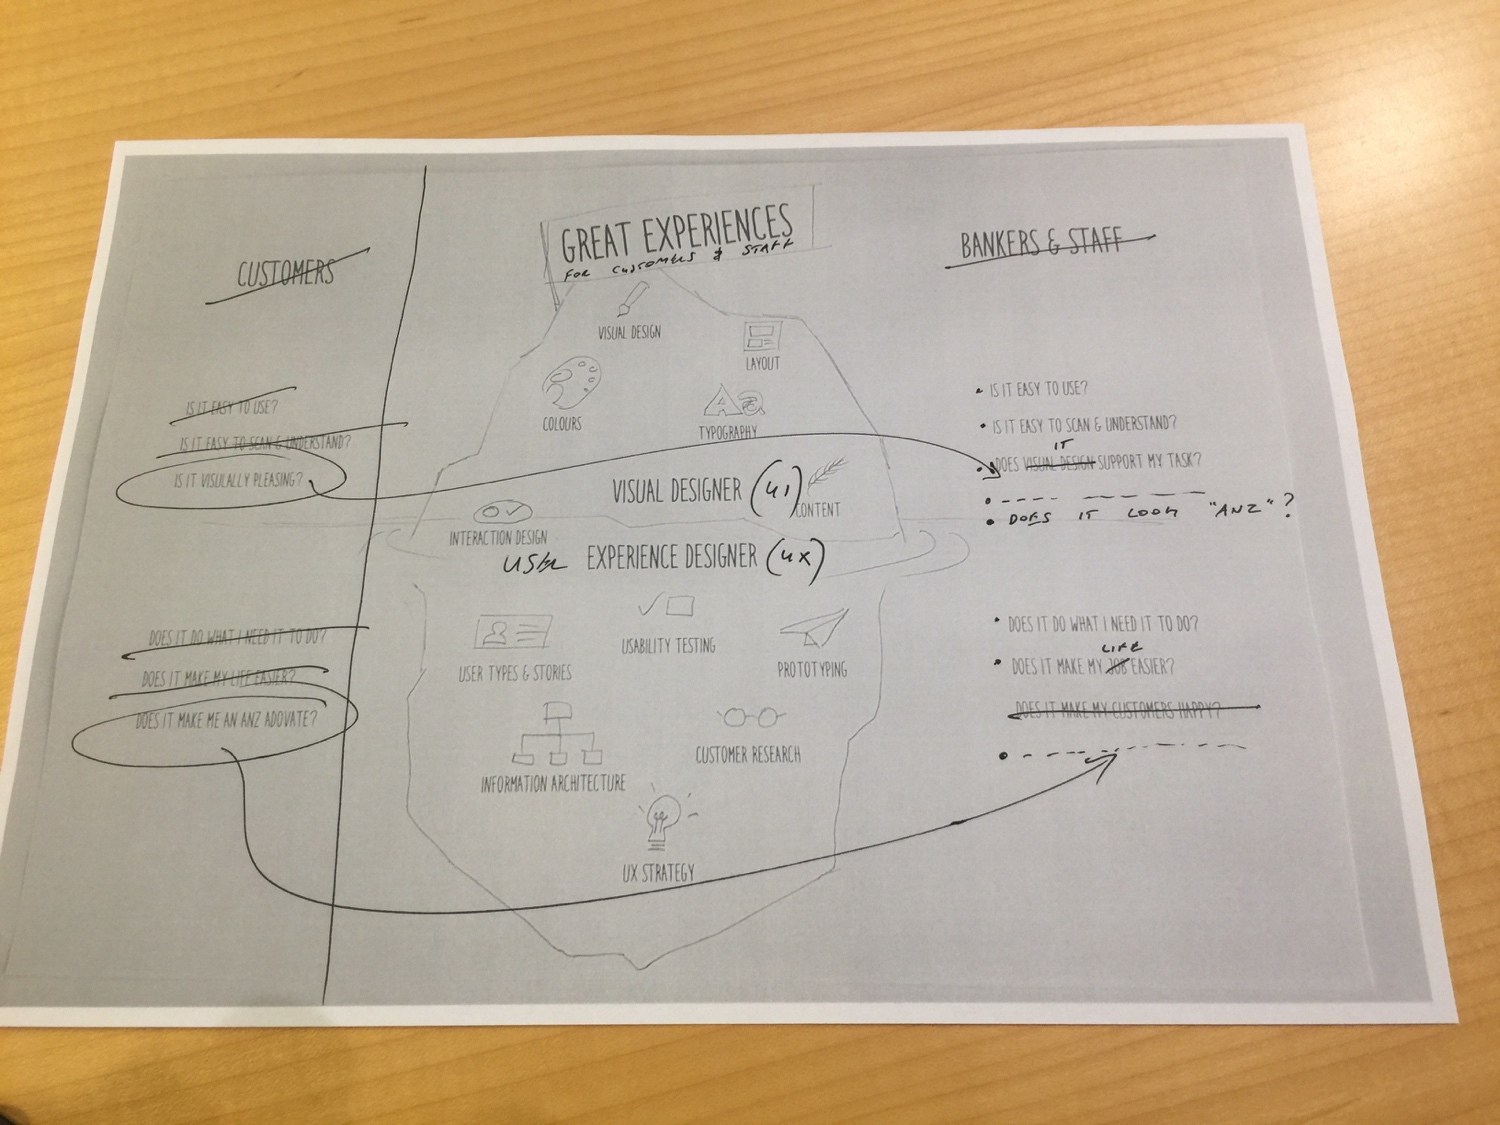 GREAT EXPERIENCES
FOR CUSTOMERS & STAFF
CUSTOMERS
BANKERS & STAFF
VISUAL DESIGN
LAYOUT
COLOURS
TYPOGRAPHY
IS IT EASY TO USE?
IS IT EASY TO SCAN & UNDERSTAND?
IS IT VISULALLY PLEASING?
IS IT EASY TO USE?
IS IT EASY TO SCAN & UNDERSTAND?
IT
DOES VISUAL DESIGN SUPPORT MY TASK?
DOES IT LOOK "ANZ"?
VISUAL DESIGNER (UI)
CONTENT
INTERACTION DESIGN
USER EXPERIENCE DESIGNER (UX)
USER TYPES & STORIES
USABILITY TESTING
PROTOTYPING
INFORMATION ARCHITECTURE
CUSTOMER RESEARCH
UX STRATEGY
DOES IT DO WHAT I NEED IT TO DO?
DOES IT MAKE MY LIFE EASIER?
DOES IT MAKE ME AN ANZ ADOVATE?
DOES IT DO WHAT I NEED IT TO DO?
LIFE
DOES IT MAKE MY JOB EASIER?
DOES IT MAKE MY CUSTOMERS HAPPY?